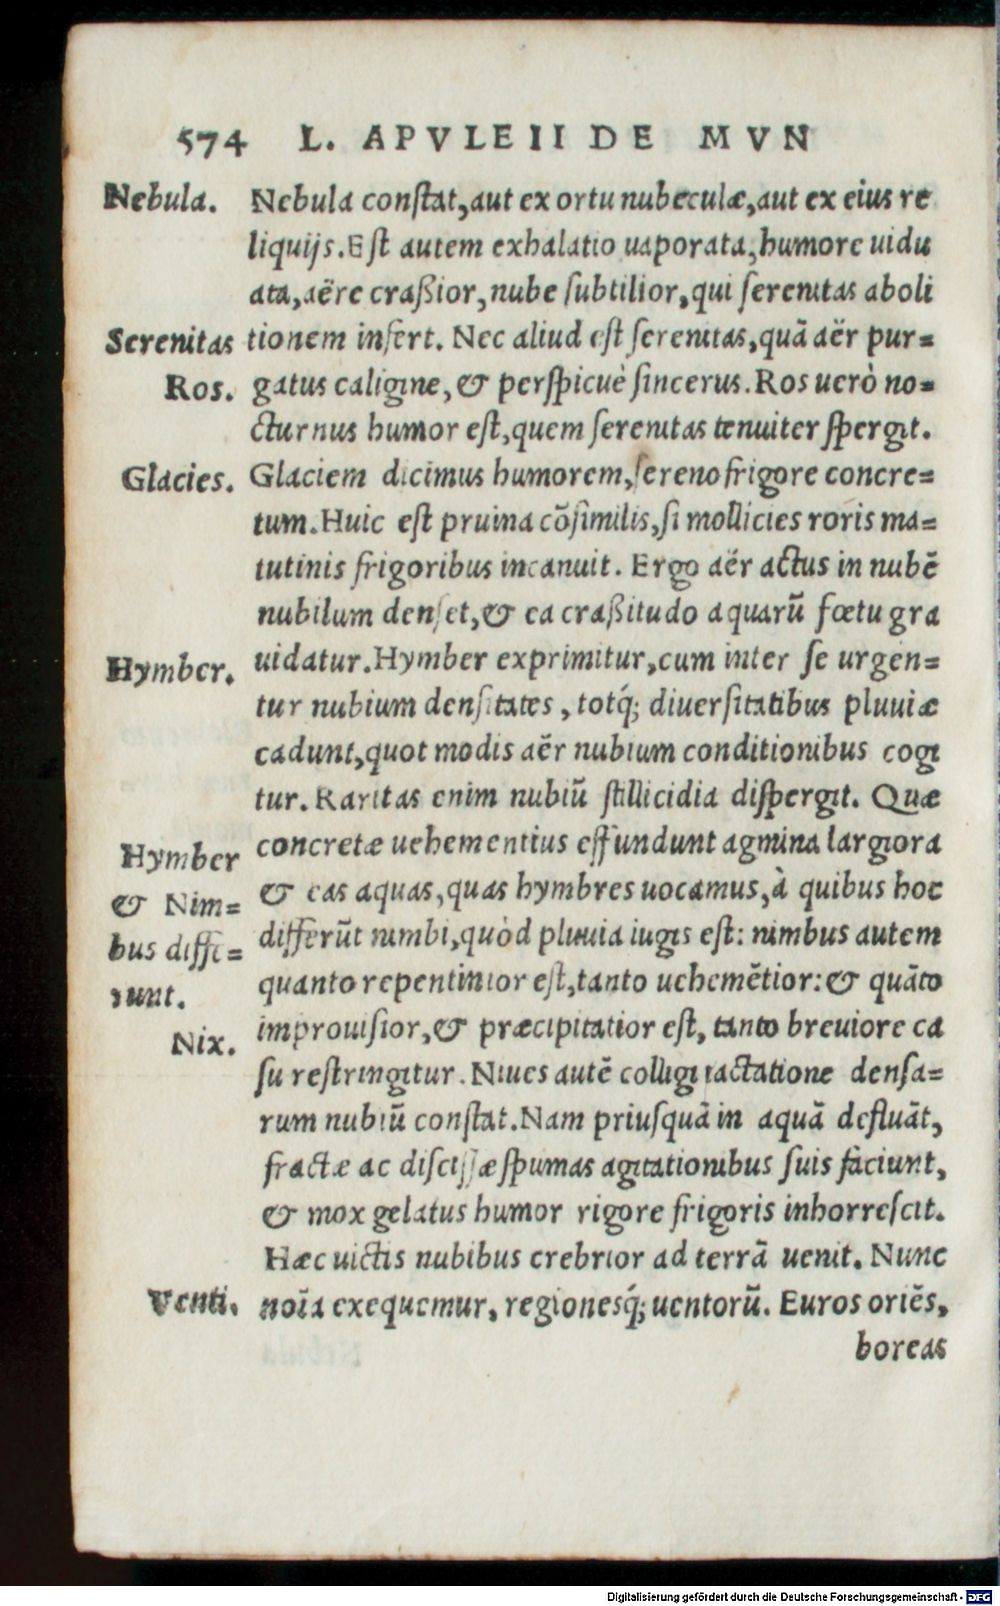 574 L. APVLEII DE MVN
Nebula.
Nebula conſtat, aut ex ortu nubeculæ, aut ex eius re
liquijs. Eſt autem exhalatio uaporata, humore uidu
ata, aëre craßior, nube ſubtilior, qui ſerenitas aboli
Serenitas
tionem inſert. Nec aliud eſt ſerenitas, quã aër pur=
Ros.
gatus caligine, & perſpicuè ſincerus. Ros uerò no=
cturnus humor eſt, quem ſerenitas tenuiter ſpergit.
Glacies.
Glaciem dicimus humorem, ſereno frigore concre=
tum. Huic eſt pruina cõſimilis, ſi mollicies roris ma=
tutinis frigoribus incanuit. Ergo aër actus in nubẽ
nubilum denſet, & ea craßitudo aquarũ fœtu gra
Hymber.
uidatur. Hymber exprimitur, cum inter ſe urgen=
tur nubium denſitates, totq́; diuerſitatibus pluuiæ
cadunt, quot modis aër nubium conditionibus cogi
tur. Raritas enim nubiũ ſtillicidia diſpergit. Quæ
Hymber
& Nim=
bus diffe=
runt.
concretæ uehementius effundunt agmina largiora
& eas aquas, quas hymbres uocamus, à quibus hoc
differũt nimbi, quòd pluuia iugis eſt: nimbus autem
quanto repentinior eſt, tanto uehemẽtior: & quãto
Nix.
improuiſior, & præcipitatior eſt, tanto breuiore ca
ſu reſtringitur. Niues autẽ colligi iactatione denſa=
rum nubiũ conſtat. Nam priuſquã in aquã defluãt,
fractæ ac diſciſſæ ſpumas agitationibus ſuis faciunt,
& mox gelatus humor rigore frigoris inhorreſcit.
Hæc uictis nubibus crebrior ad terrã uenit. Nunc
Venti.
noĩa exequemur, regionesq́; uentorũ. Euros oriẽs,
boreas
Digitalisierung gefördert durch die Deutsche Forschungsgemeinschaft - DFG